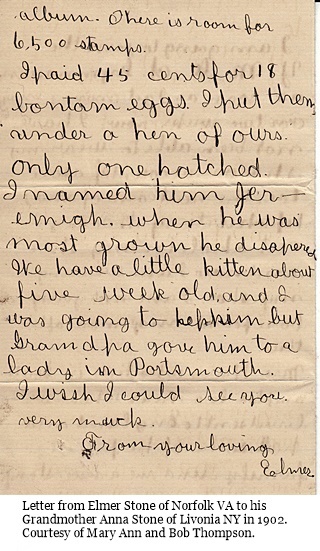 album. There is room for
6,500 stamps.
I paid 45 cents for 18
bantam eggs. I put them
under a hen of ours.
only one hatched.
I named him Jer-
emigh. when he was
most grown he disapered
We have a little kitten about
five week old, and I
was going to kepkim but
Grandpa gove him to a
lady im Portsmouth.
I wssh I could see you
very muck.
From your loving
Elmer
Letter from Elmer Stone of Norfolk VA to his
Grandmother Anna Stone of Livonia NY in 1902.
Courtesy of Mary Ann and Bob Thompson.